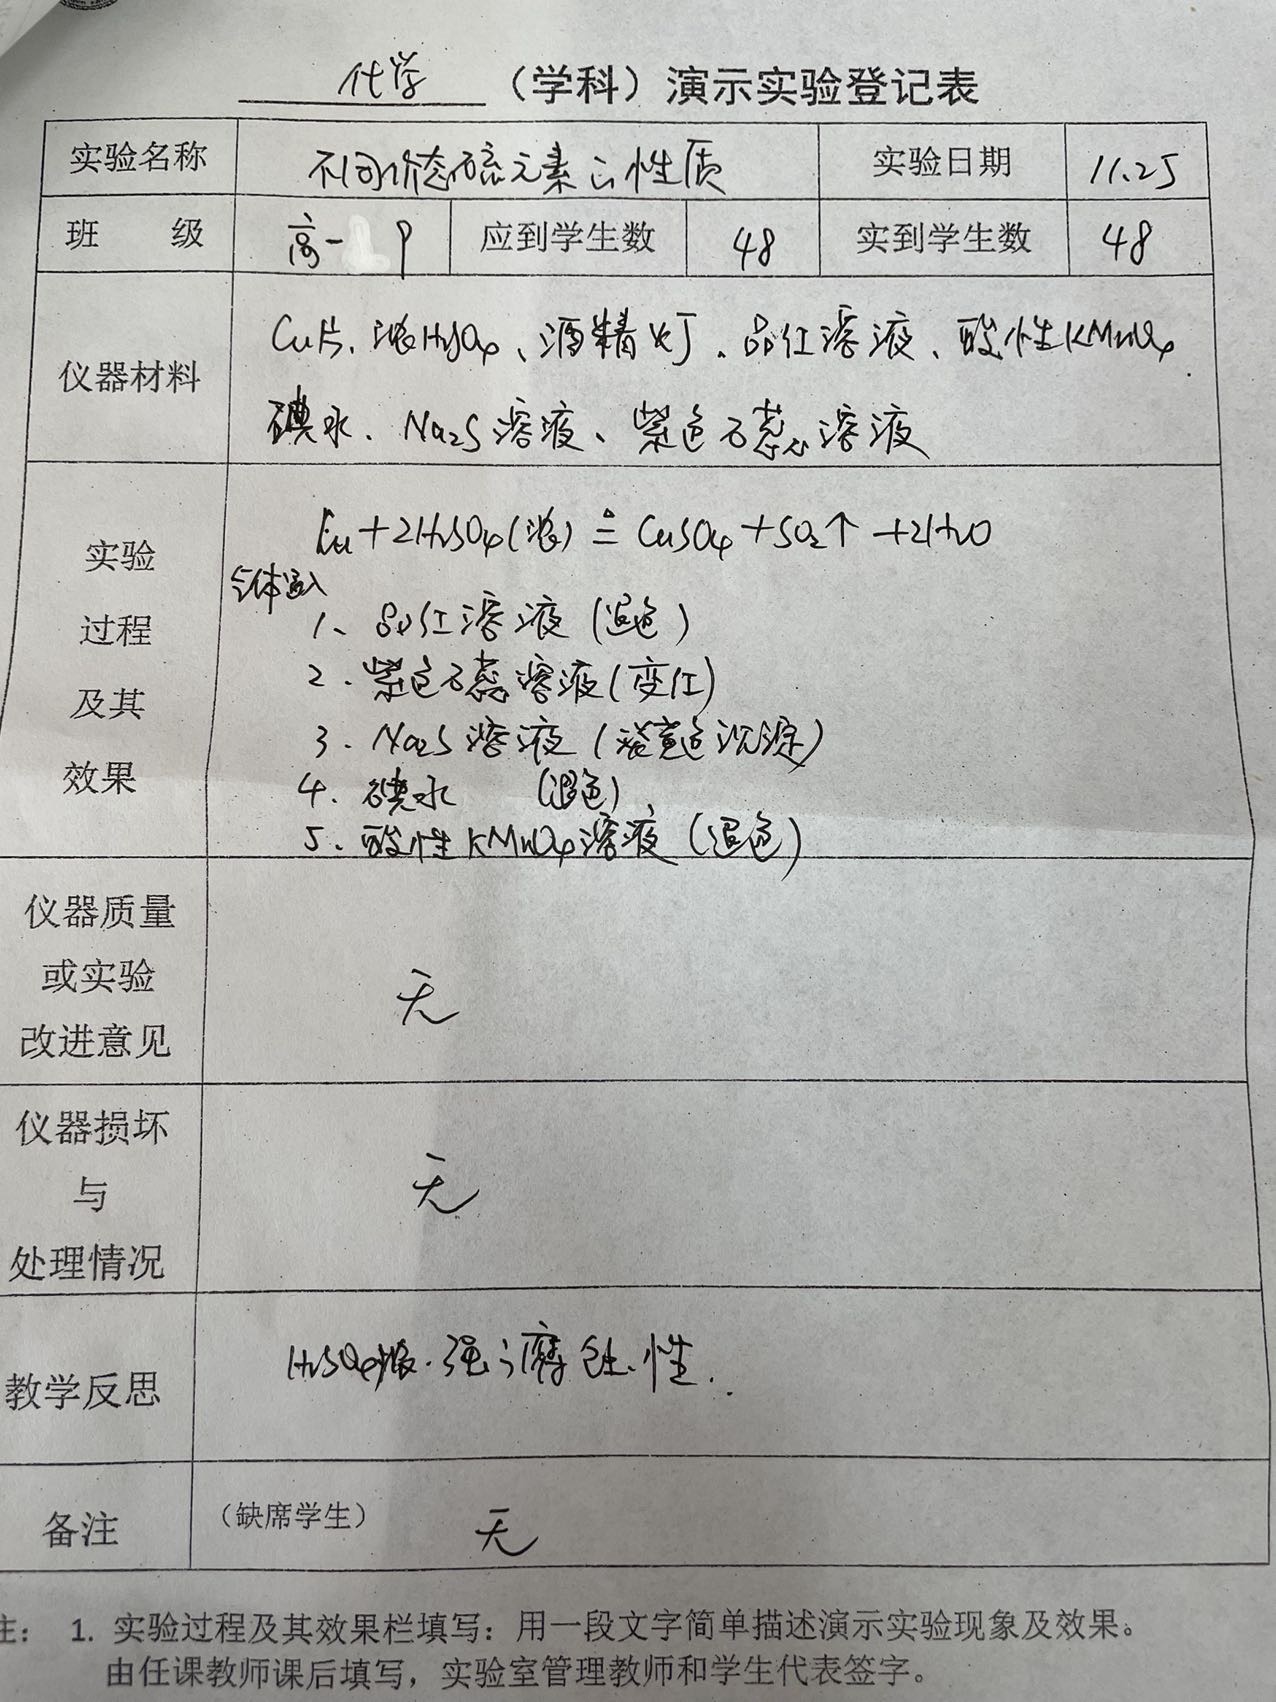 化学 （学科）演示实验登记表
实验名称 不同价态硫元素的性质 实验日期 11.25
班 级 高一 9 应到学生数 48 实到学生数 48
仪器材料
Cu片、浓H2SO4、酒精灯、品红溶液、酸性KMnO4
碘水、Na2S溶液、紫色石蕊溶液
实验
过程
及其
效果
Cu+2H2SO4(浓) ≜ CuSO4+SO2↑+2H2O
气体通入
1、品红溶液（退色）
2、紫色石蕊溶液（变红）
3、Na2S溶液（淡黄色沉淀）
4、碘水 （退色）
5、酸性KMnO4溶液（退色）
仪器质量
或实验
改进意见
无
仪器损坏
与
处理情况
无
教学反思 H2SO4浓.强腐蚀性.
备注 （缺席学生） 无
注： 1. 实验过程及其效果栏填写：用一段文字简单描述演示实验现象及效果。
由任课教师课后填写，实验室管理教师和学生代表签字。